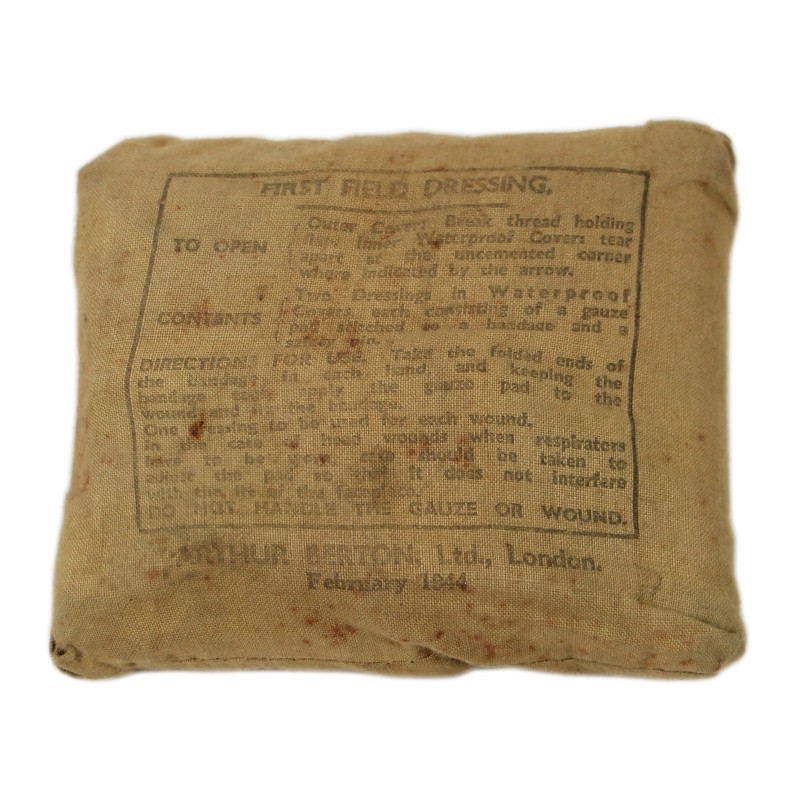 FIRST FIELD DRESSING.
TO OPEN
Outer Cover: Break thread holding
flap. Inner Waterproof Cover: tear
apart at the uncemented corner
where indicated by the arrow.
CONTENTS
Two Dressings in Waterproof
Covers, each consisting of a gauze
pad stitched to a bandage and a
safety pin.
DIRECTIONS FOR USE. Take the folded ends of
the bandage in each hand, and keeping the
bandage taut apply the gauze pad to the
wound and fix the bandage.
One dressing to be used for each wound.
In the case of head wounds when respirators
have to be worn, care should be taken to
adjust the pad so that it does not interfere
with the fit of the facepiece.
DO NOT HANDLE THE GAUZE OR WOUND.
ARTHUR BERTON, Ltd., London.
February 1944